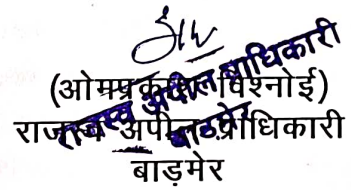 (ओमप्रकाश विश्नोई)
राजस्व अपील प्राधिकारी
बाड़मेर
राजस्व अपील प्राधिकारी
बाडमेर